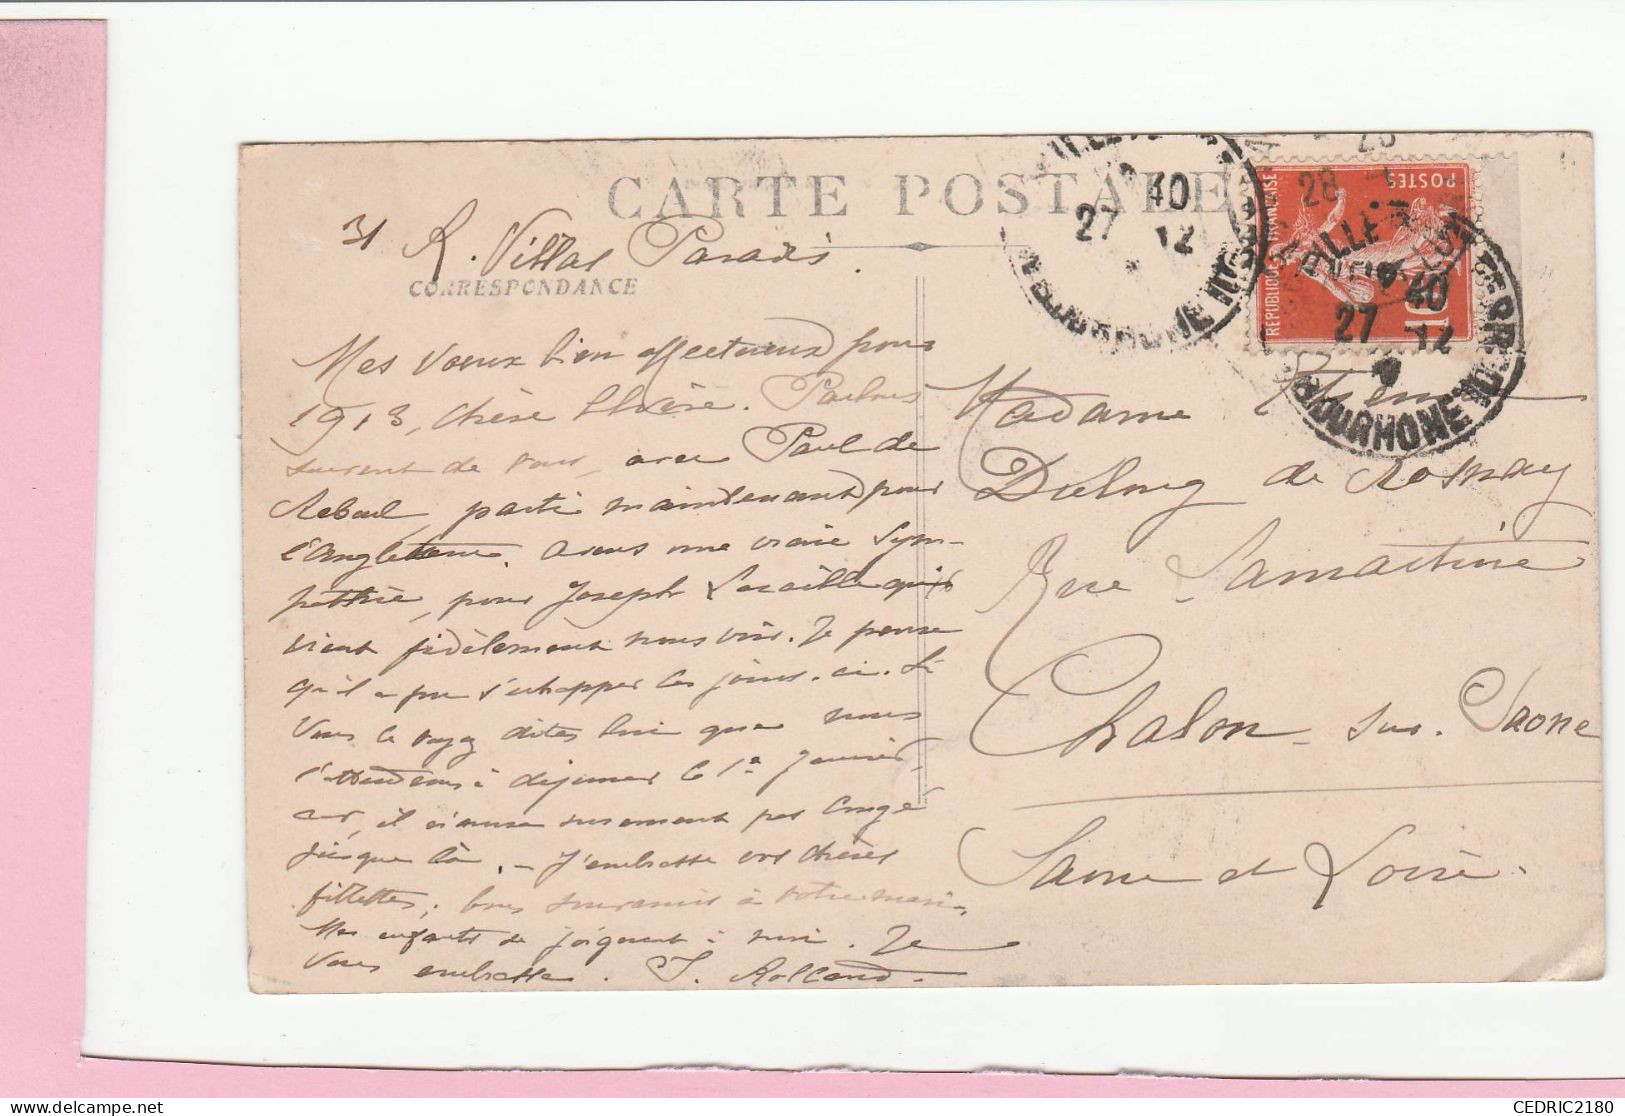 CARTE POSTALE
31 R. Villas Paradis.
CORRESPONDANCE
Mes voeux bien affectueux pour
1913, chère. Parlons
souvent de vous, avec Paul de
Reboul, parti maintenant pour
l'Angleterre. Avons une vraie sym-
pathie, pour Joseph qui
vient fidèlement nous voir. Je pense
qu'il a pu s'echapper ces jours-ci. Si
vous le voyez dites lui que nous
l'attendons à dejeuner le 1er Janvier,
car, il n'aura surement pas congé
jusque là. - J'embrasse vos chères
fillettes; bons souvenirs à votre mari,
Mes enfants se joignent à moi. Je
vous embrasse. J. Rolland.
Madame
Dulong de Rosnay
Rue Lamartine
Chalon - sur - Saone
Saone et Loire.
REPUBLIQUE FRANÇAISE
POSTES
10
40
27 12
40
27 12
28
CEDRIC2180